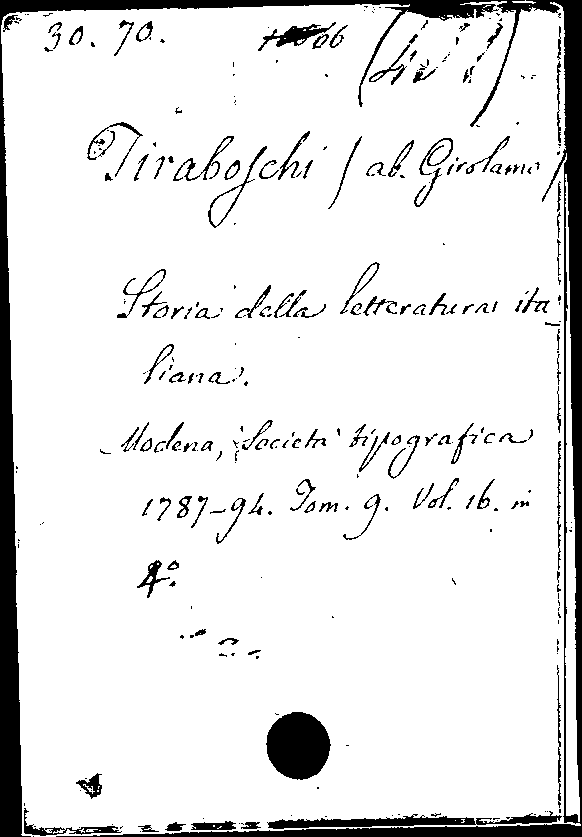 30. 70.
Tiraboschi / ab. Girolamo /
Storia della letteratura ita
liana.
Modena, Società tipografica
1787-94. Tom. 9. Vol. 16. in
4°.